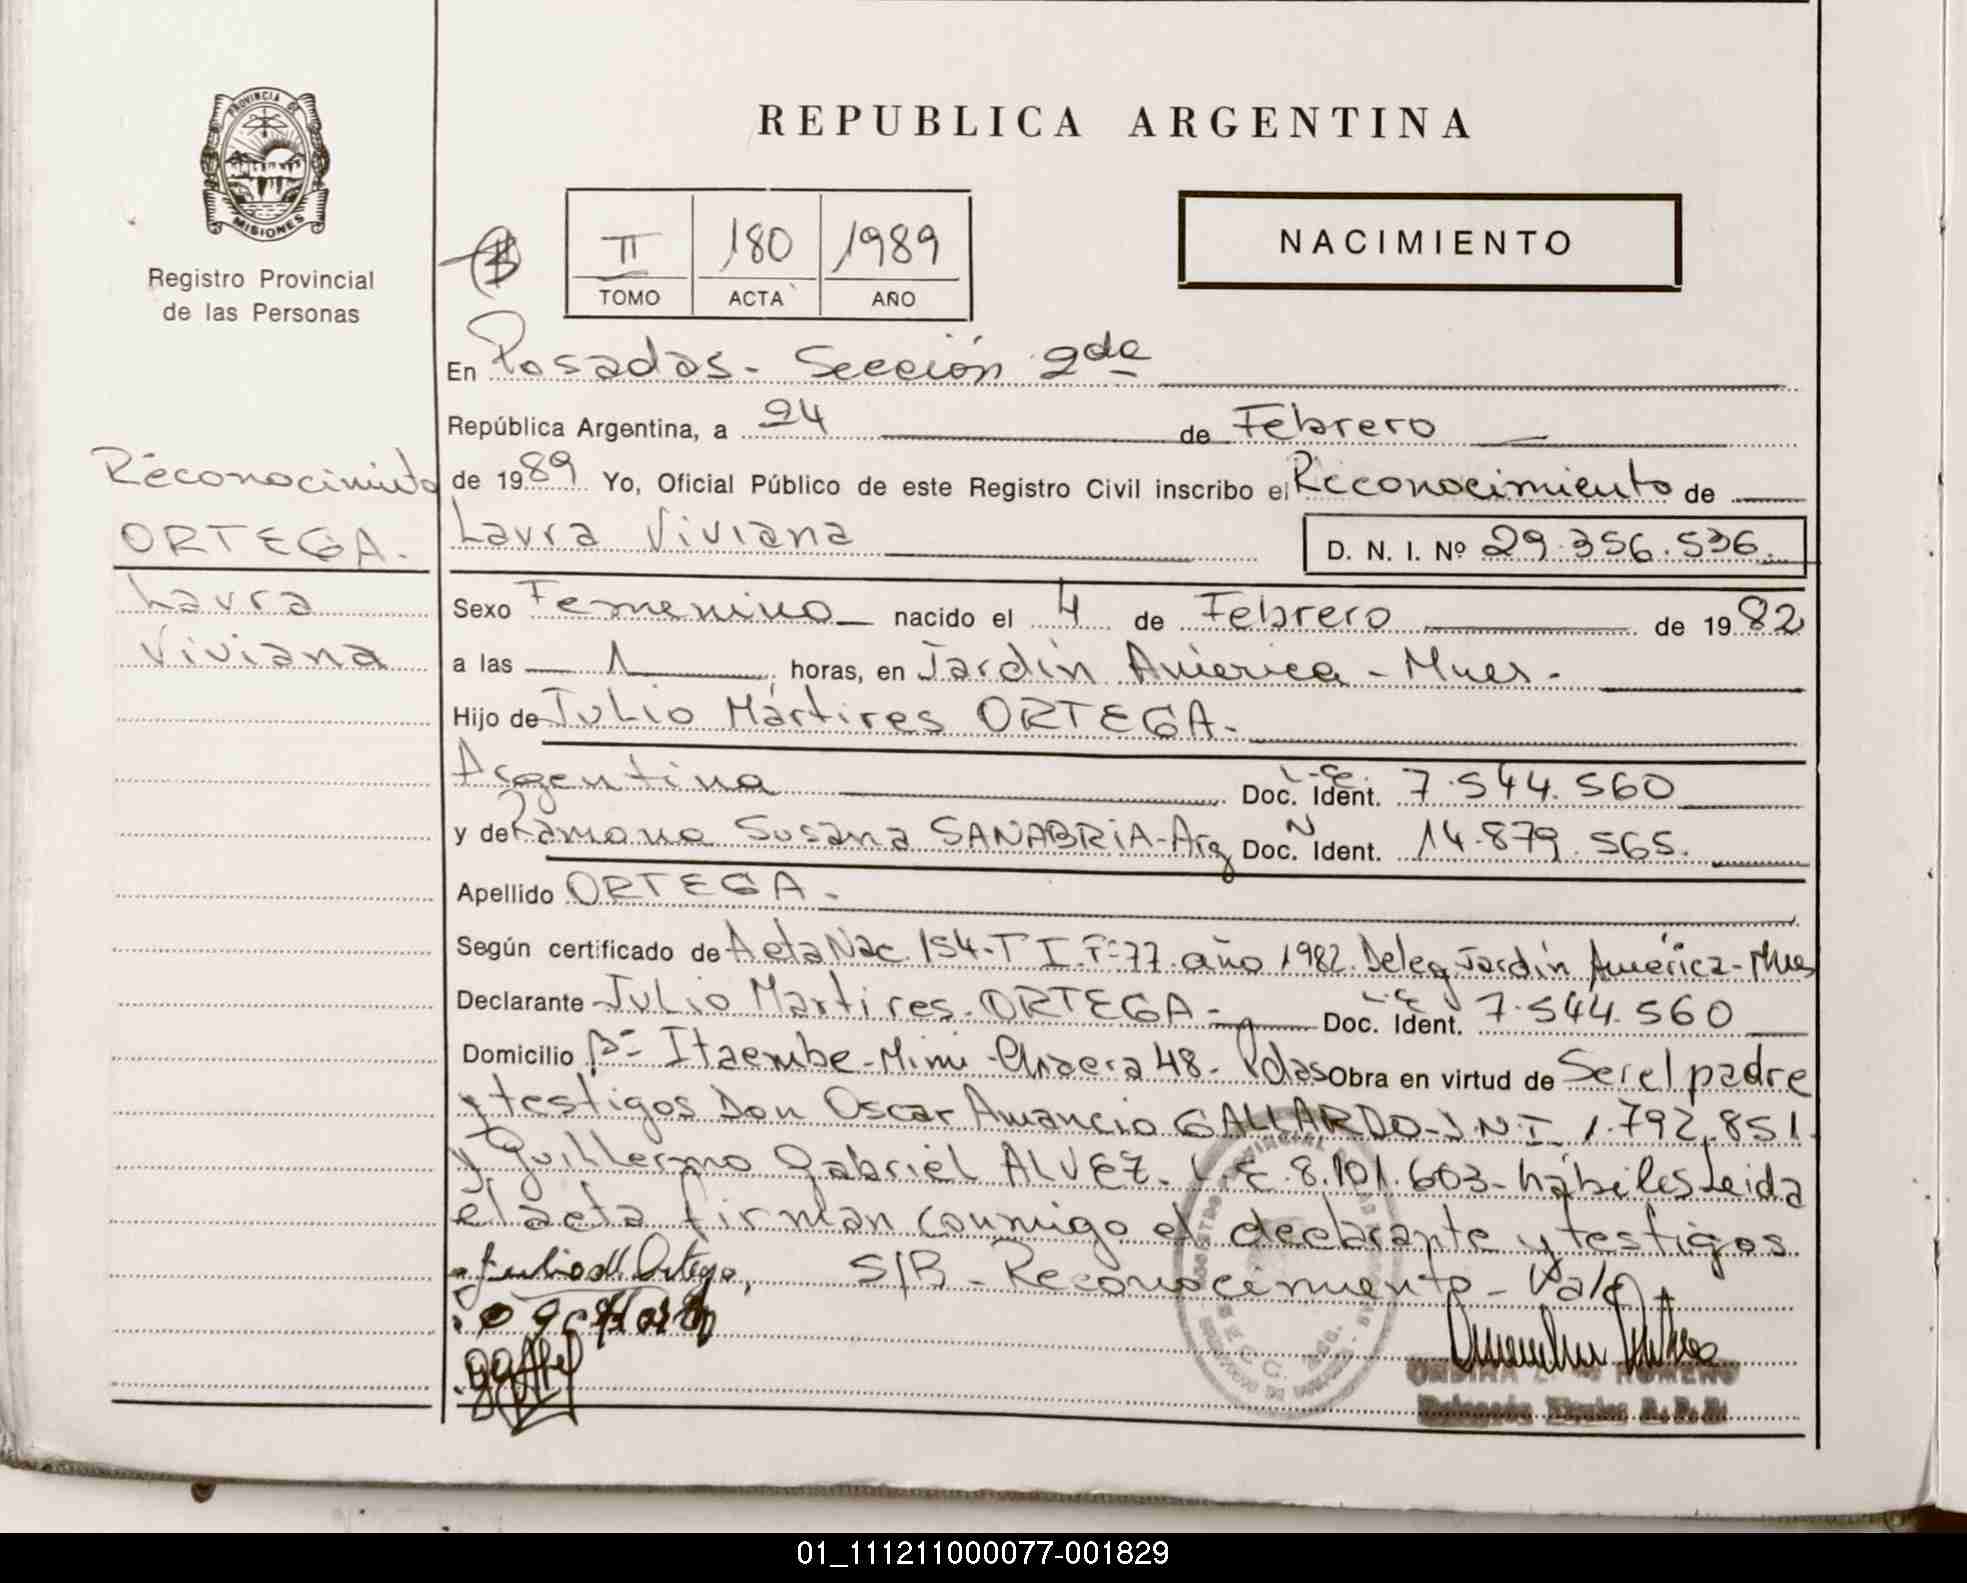 PROVINCIA DE
MISIONES
Registro Provincial
de las Personas
REPUBLICA ARGENTINA
II 180 1989
TOMO ACTA AÑO
NACIMIENTO
En Posadas - Sección 2da
República Argentina, a 24 de Febrero
de 1989 Yo, Oficial Público de este Registro Civil inscribo el Reconocimiento de
Laura Viviana D. N. I. Nº 29.356.536.
Reconocimiento
ORTEGA.
Laura
Viviana
Sexo Femenino nacido el 4 de Febrero de 1982
a las 1 horas, en Jardín América - Mnes.
Hijo de Julio Mártires ORTEGA.
Argentina L.E. Doc. Ident. 7.544.560
y de Ramona Susana SANABRIA-Arg N Doc. Ident. 14.879.565.
Apellido ORTEGA.
Según certificado de Acta Nac. 154-T I. Fº 77 año 1982. Deleg Jardín América - Mnes
Declarante Julio Martires ORTEGA - L.E. Doc. Ident. 7.544.560
Domicilio Bº Itaembe-Mini-Chacra 48 - Pdas Obra en virtud de Ser el padre
y testigos Don Oscar Amancio GALLARDO - D.N.I. 1.792.851.
y Guillermo Gabriel ALVEZ. L.E. 8.101.603- hábiles Leida
el acta firman conmigo el declarante y testigos
Julio M. Ortega, S/B - Reconocimiento - Vale
ROMERO
01_111211000077-001829